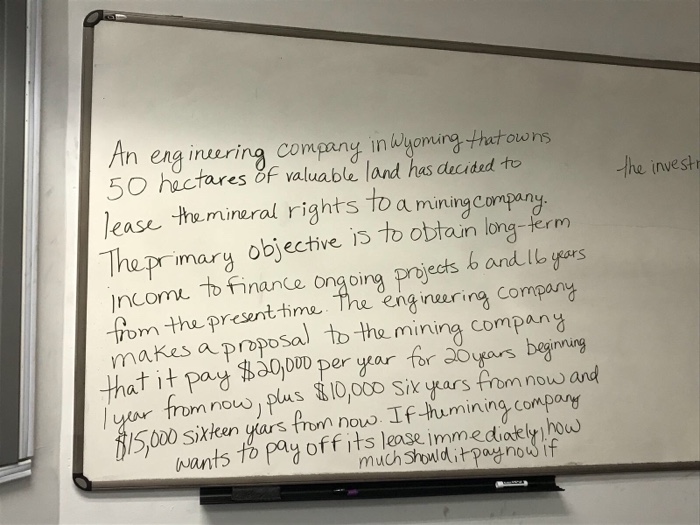 An engineering company in Wyoming that owns
50 hectares of valuable land has decided to
lease the mineral rights to a mining company.
The primary objective is to obtain long-term
income to finance ongoing projects 6 and 16 years
from the present time. The engineering company
makes a proposal to the mining company
that it pay $20,000 per year for 20 years beginning
1 year from now, plus $10,000 six years from now and
$15,000 sixteen years from now. If the mining company
wants to pay off its lease immediately, how
much should it pay now if
the invest